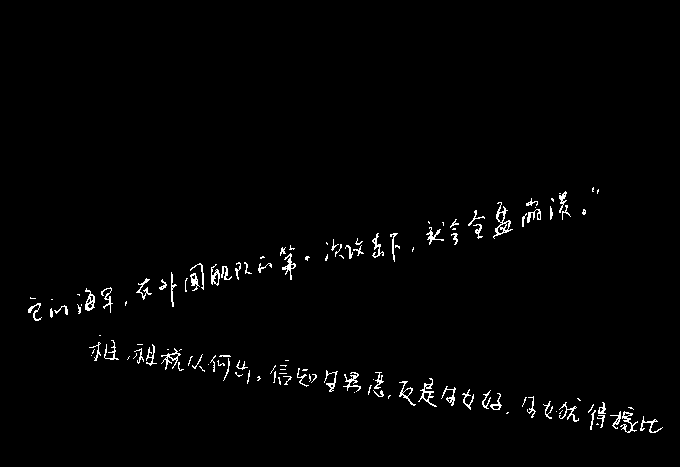 它的海军，在外国舰队的第一次攻击下，就会全盘崩溃。”
租，租税从何出，信知生男恶，反是生女好，生女犹得嫁比